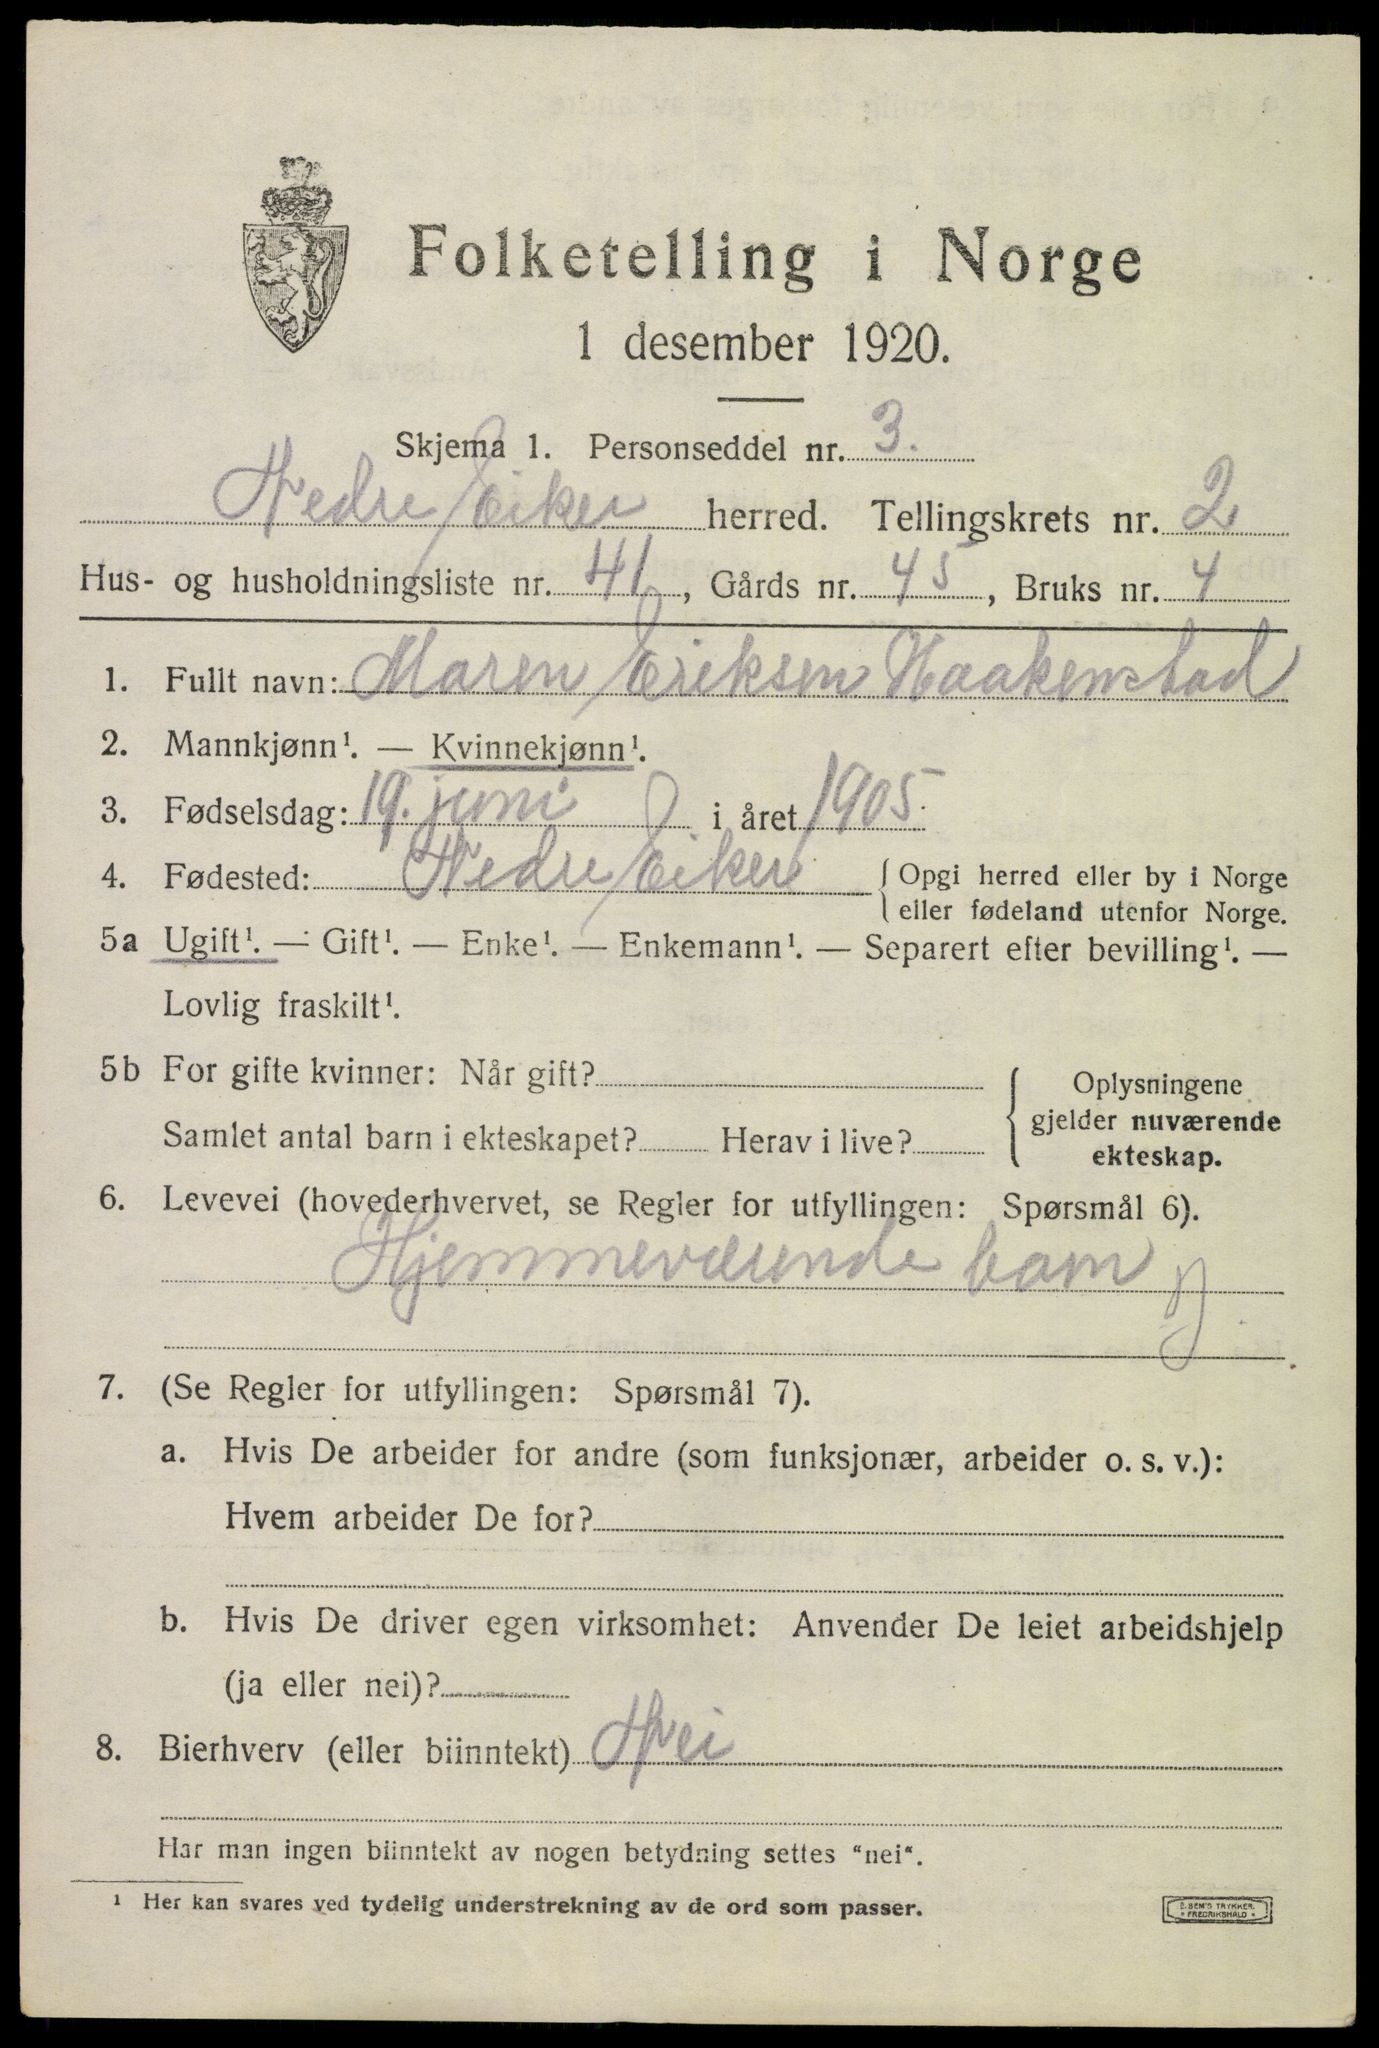 Folketelling i Norge
1 desember 1920.
Skjema 1. Personseddel nr. 3.
Nedre Eiker herred. Tellingskrets nr. 2
Hus- og husholdningsliste nr. 41, Gårds nr. 45, Bruks nr. 4
1. Fullt navn: Maren Eriksen Haakenstad
2. Mannkjønn¹. — Kvinnekjønn¹.
3. Fødselsdag: 19. juni i året 1905.
4. Fødested: Nedre Eiker { Opgi herred eller by i Norge
eller fødeland utenfor Norge.
5a Ugift¹. — Gift¹. — Enke¹. — Enkemann¹. — Separert efter bevilling¹. —
Lovlig fraskilt¹.
5b For gifte kvinner: Når gift?
Samlet antal barn i ekteskapet? Herav i live?
{ Oplysningene
gjelder nuværende
ekteskap.
6. Levevei (hovederhvervet, se Regler for utfyllingen: Spørsmål 6).
Hjemmeværende barn
7. (Se Regler for utfyllingen: Spørsmål 7).
a. Hvis De arbeider for andre (som funksjonær, arbeider o. s. v.):
Hvem arbeider De for?
b. Hvis De driver egen virksomhet: Anvender De leiet arbeidshjelp
(ja eller nei)?
8. Bierhverv (eller biinntekt) Nei
Har man ingen biinntekt av nogen betydning settes "nei".
¹ Her kan svares ved tydelig understrekning av de ord som passer.
E. SEM'S TRYKKERI
• FREDRIKSHALD •